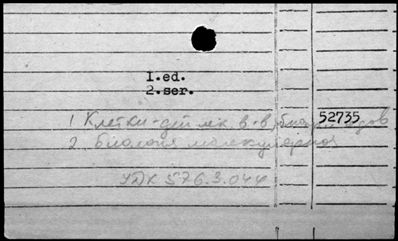 I.ed.
2.ser.
1 Клетки-дей лек. в-в, 52735
2. биология молекулярная
УДК 576.3.044